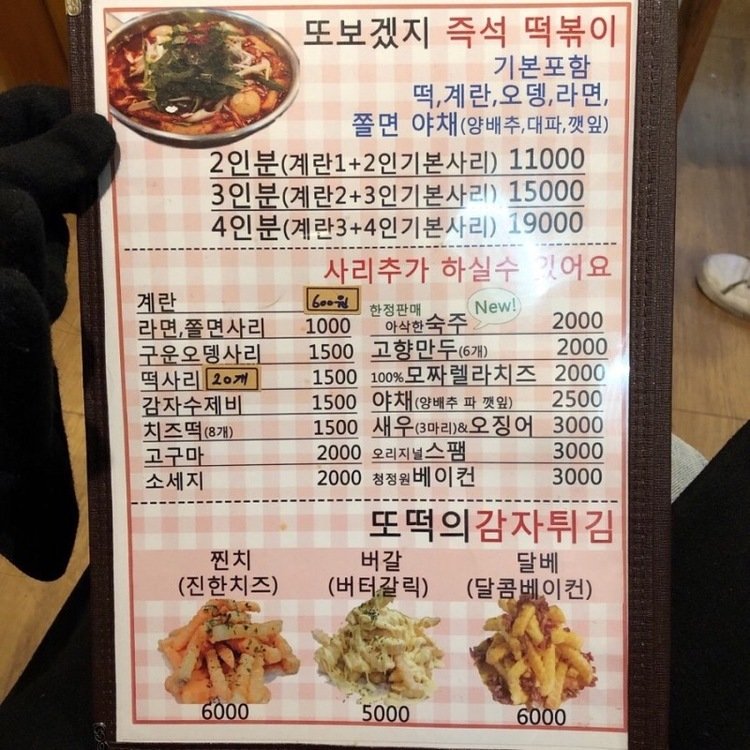 또보겠지 즉석 떡볶이
기본포함
떡,계란,오뎅,라면,
쫄면 야채(양배추,대파,깻잎)
2인분(계란1+2인기본사리) 11000
3인분(계란2+3인기본사리) 15000
4인분(계란3+4인기본사리) 19000
사리추가 하실수 있어요
계란 600원
라면,쫄면사리 1000
구운오뎅사리 1500
떡사리 20개 1500
감자수제비 1500
치즈떡(8개) 1500
고구마 2000
소세지 2000
한정판매 New!
아삭한숙주 2000
고향만두(6개) 2000
100%모짜렐라치즈 2000
야채(양배추 파 깻잎) 2500
새우(3마리)&오징어 3000
오리지널스팸 3000
청정원베이컨 3000
또떡의감자튀김
찐치 버갈 달베
(진한치즈) (버터갈릭) (달콤베이컨)
6000 5000 6000